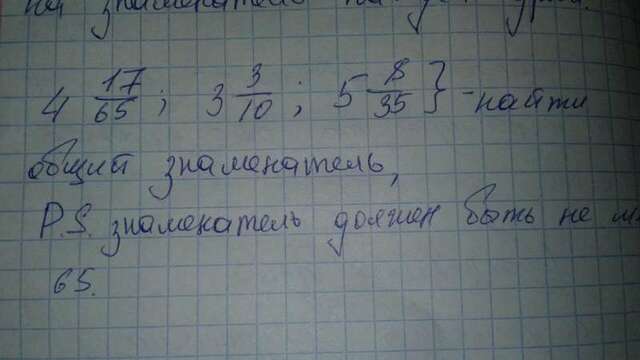 на знаменатель
4 17/65 ; 3 3/10 ; 5 8/35 } - найти
общий знаменатель,
P.S. знаменатель должен быть не
65.